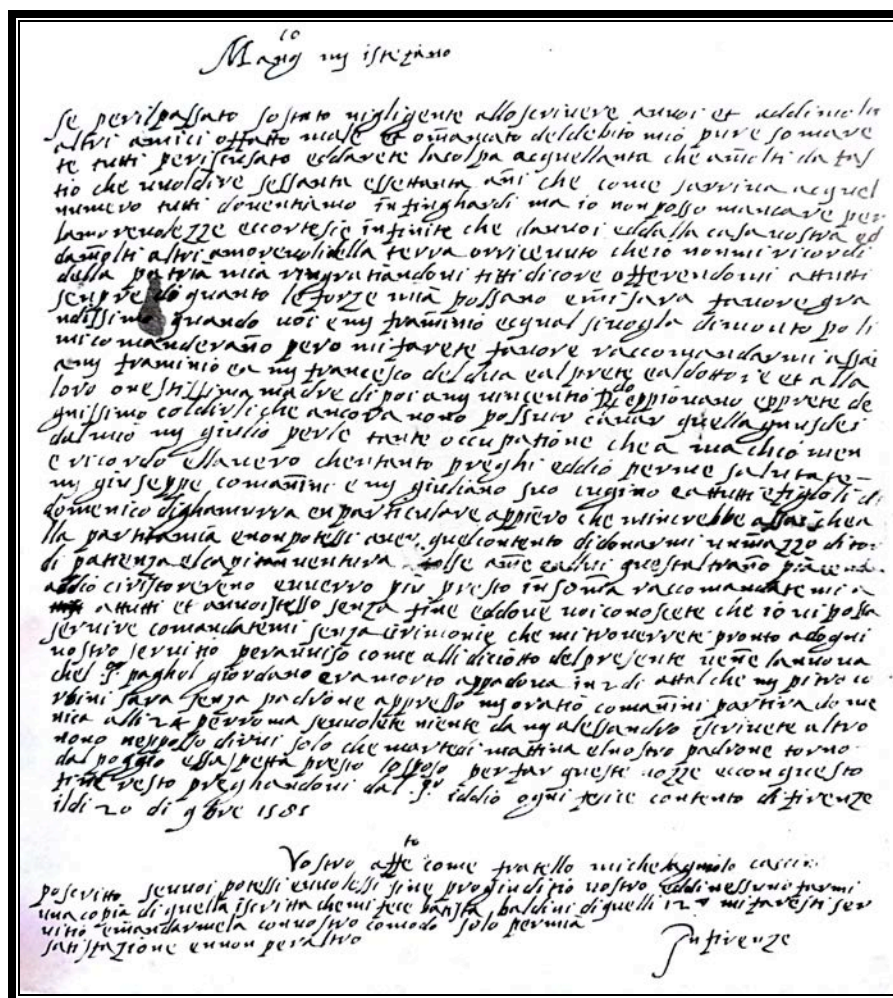 Mag.co mj istefano
se per il passato so stato nigligente allo scrivere annoi et addimolti
altri amici offatto male et o mancato deldebito mio pure so mave
te tutti per iscusato eddarete la colpa acquellanta che amolti da fas
tio che vuoldire sessanta essettanta anni che come sarriva acquel
numero tutti doventiamo infinghardi ma io non posso mancare per
lamorevolezze eccortesie infinite che dannoi eddalla casa vostra ed
damolti altri amorevoli della terra orricenuto cheio nonmi ricordi
della patria mia ringratiandoui titti dicore offerendomi attutti
senpre di quanto le forze mia possano emi sara favore gra
ndissimo quando uoi e mj framinio ecqual sivogla dimonto poli
mi comanderano pero mi farete favore raccomandarmi assai
amj framinio ea mj francesco deldua ealprete ealdottore et alla
loro onestissima madre dipoi amj vincentio eppiovano epprete de
gnissimo coldirli che ancora nono possuto cavar quella
dalmio mj giulio perle tante occupatione che a ma chio men
e ricordo ellavero chentanto preghi eddio perme salutate
mj giuseppe comanini e mj giuliano suo cugino eattutti efigloli di
domenico dighamurra enparticulare appiero che mincrebbe assai chea
lla partitamia enonpotessi aver quelcontento didonarmi unmazzo ditor
di patienza elcapitanventura tolse ame eadui questaltrano piacendo
addio civistovereno ennerro più presto insoma raccomandatemi a
attutti et annoistesso senza fine eddove uoiconoscete che io ui possa
servire comandatemi senza cirimonie che mitroverrete pronto adogni
vostro servitio perauuiso come allidiciotto delpresente uene lanuoua
chel s.r paghol giordano eramorto appadoua in 2 di attal che mj pitro co
rbini sara senza padrone appresso mj oratio comanini partira dome
nica alli 24 perroma seuuolete niente da mj alessandro iscriuete altro
nono nepposso dirui solo che martedi mattina elnostro padrone torno
dal poggio essaspetta presto losposo perfar queste nozze ecconquesto
fine resto preghandoui dal s.r iddio ogni felice contento difirenze
ildi 20 di 9bre 1585
Vostro aff.to come fratello michelagniolo caccini
poscritto sennoi potessi ennolessi sine progiuditio vostro eddinessuno farmi
una copia di quella iscritta chemi fece batista baldini diquelli 12 mi faresti ser
uitio emandarmela convostro comodo solo permia
satisfazione ennon peraltro
In firenze